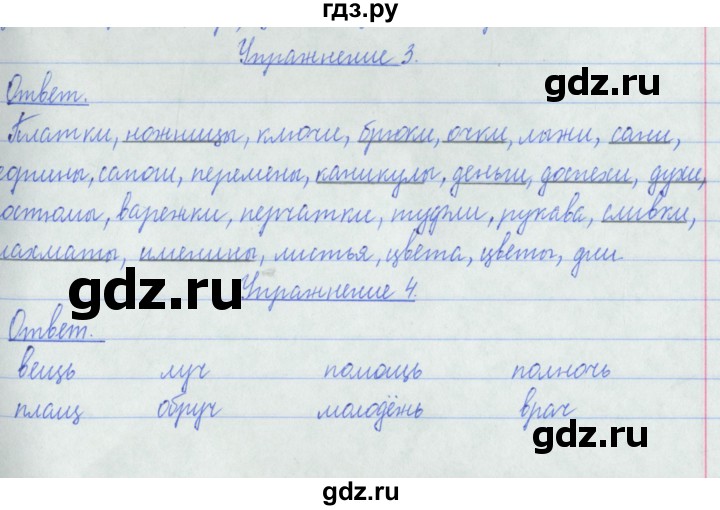 гдз.ру
Упражнение 3.
gdz.ru
Ответ.
Платки, ножницы, ключи, брюки, очки, лыжи, сани,
сапоги, перемены, каникулы, деньги, доспехи, духи,
остюмы, варежки, перчатки, туфли, рукава, сливки,
ахматы, именины, листья, цвета, цветы, дни
gdz.ru
Упражнение 4.
Ответ.
вещь луч помощь полночь
плащ обруч молодёжь врач
gdz.ru
gdz.ru